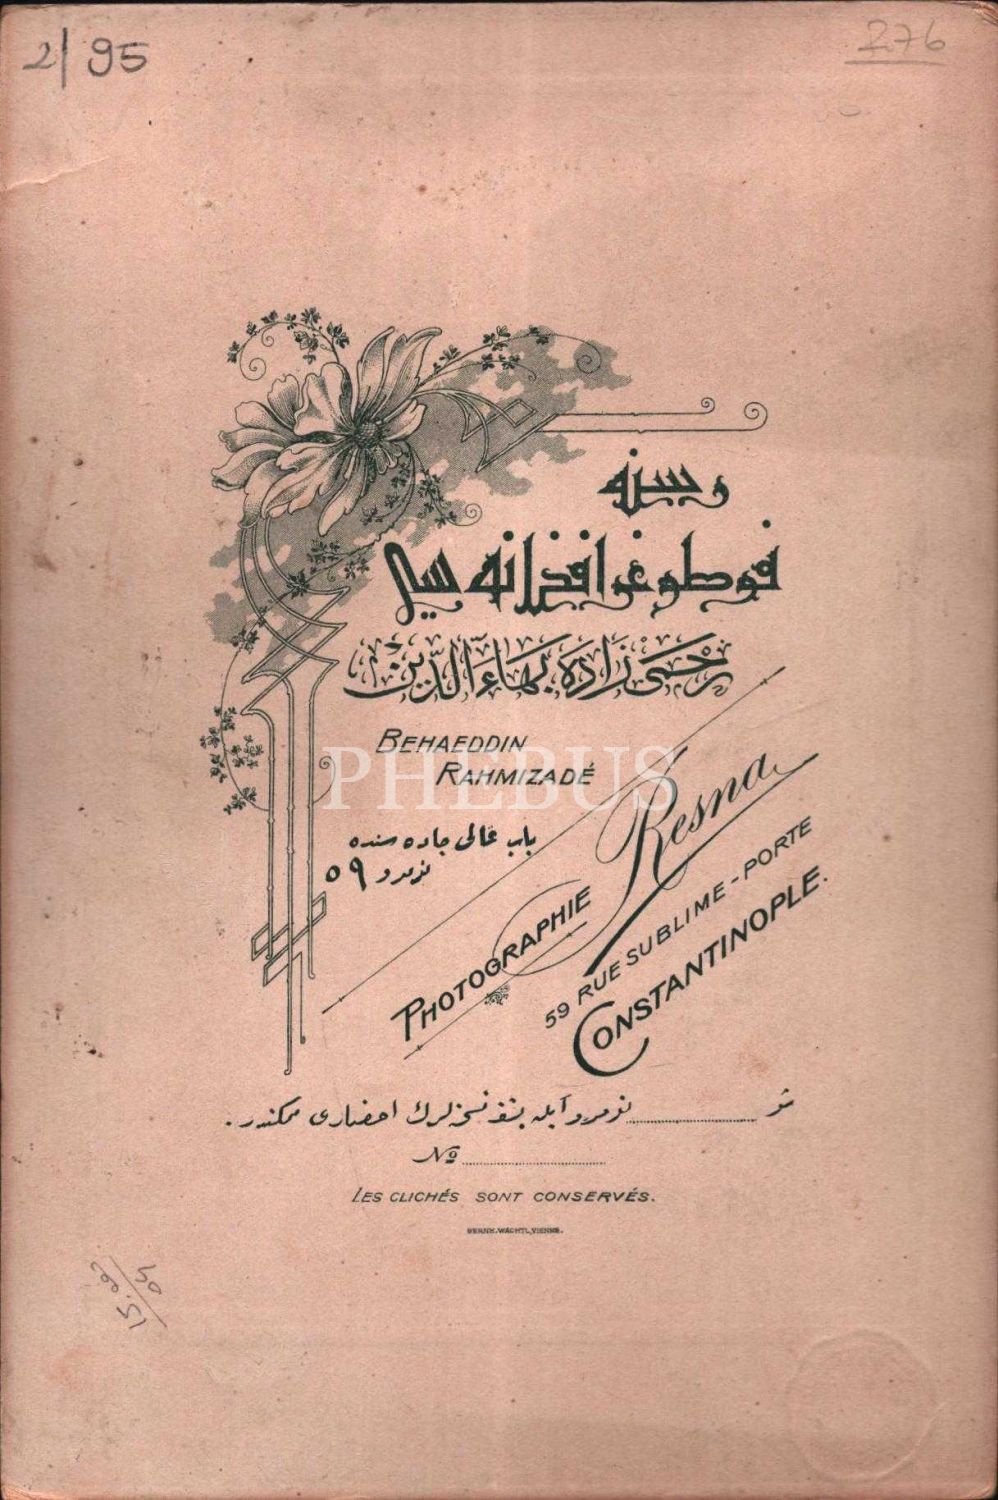 2/95
276
رسنه
فوطوغرافخانه سی
رحمی زاده بهاء الدین
BEHAEDDIN
RAHMIZADÉ
PHEBUS
باب عالی جاده سنده
نومرو ٥٩
PHOTOGRAPHIE Resna
59 RUE SUBLIME-PORTE
CONSTANTINOPLE.
شو ............ نومرو ایله نسخه لرك احضاری ممكندر.
No ............
LES CLICHÉS SONT CONSERVÉS.
BERNH. WACHTL, VIENNE.